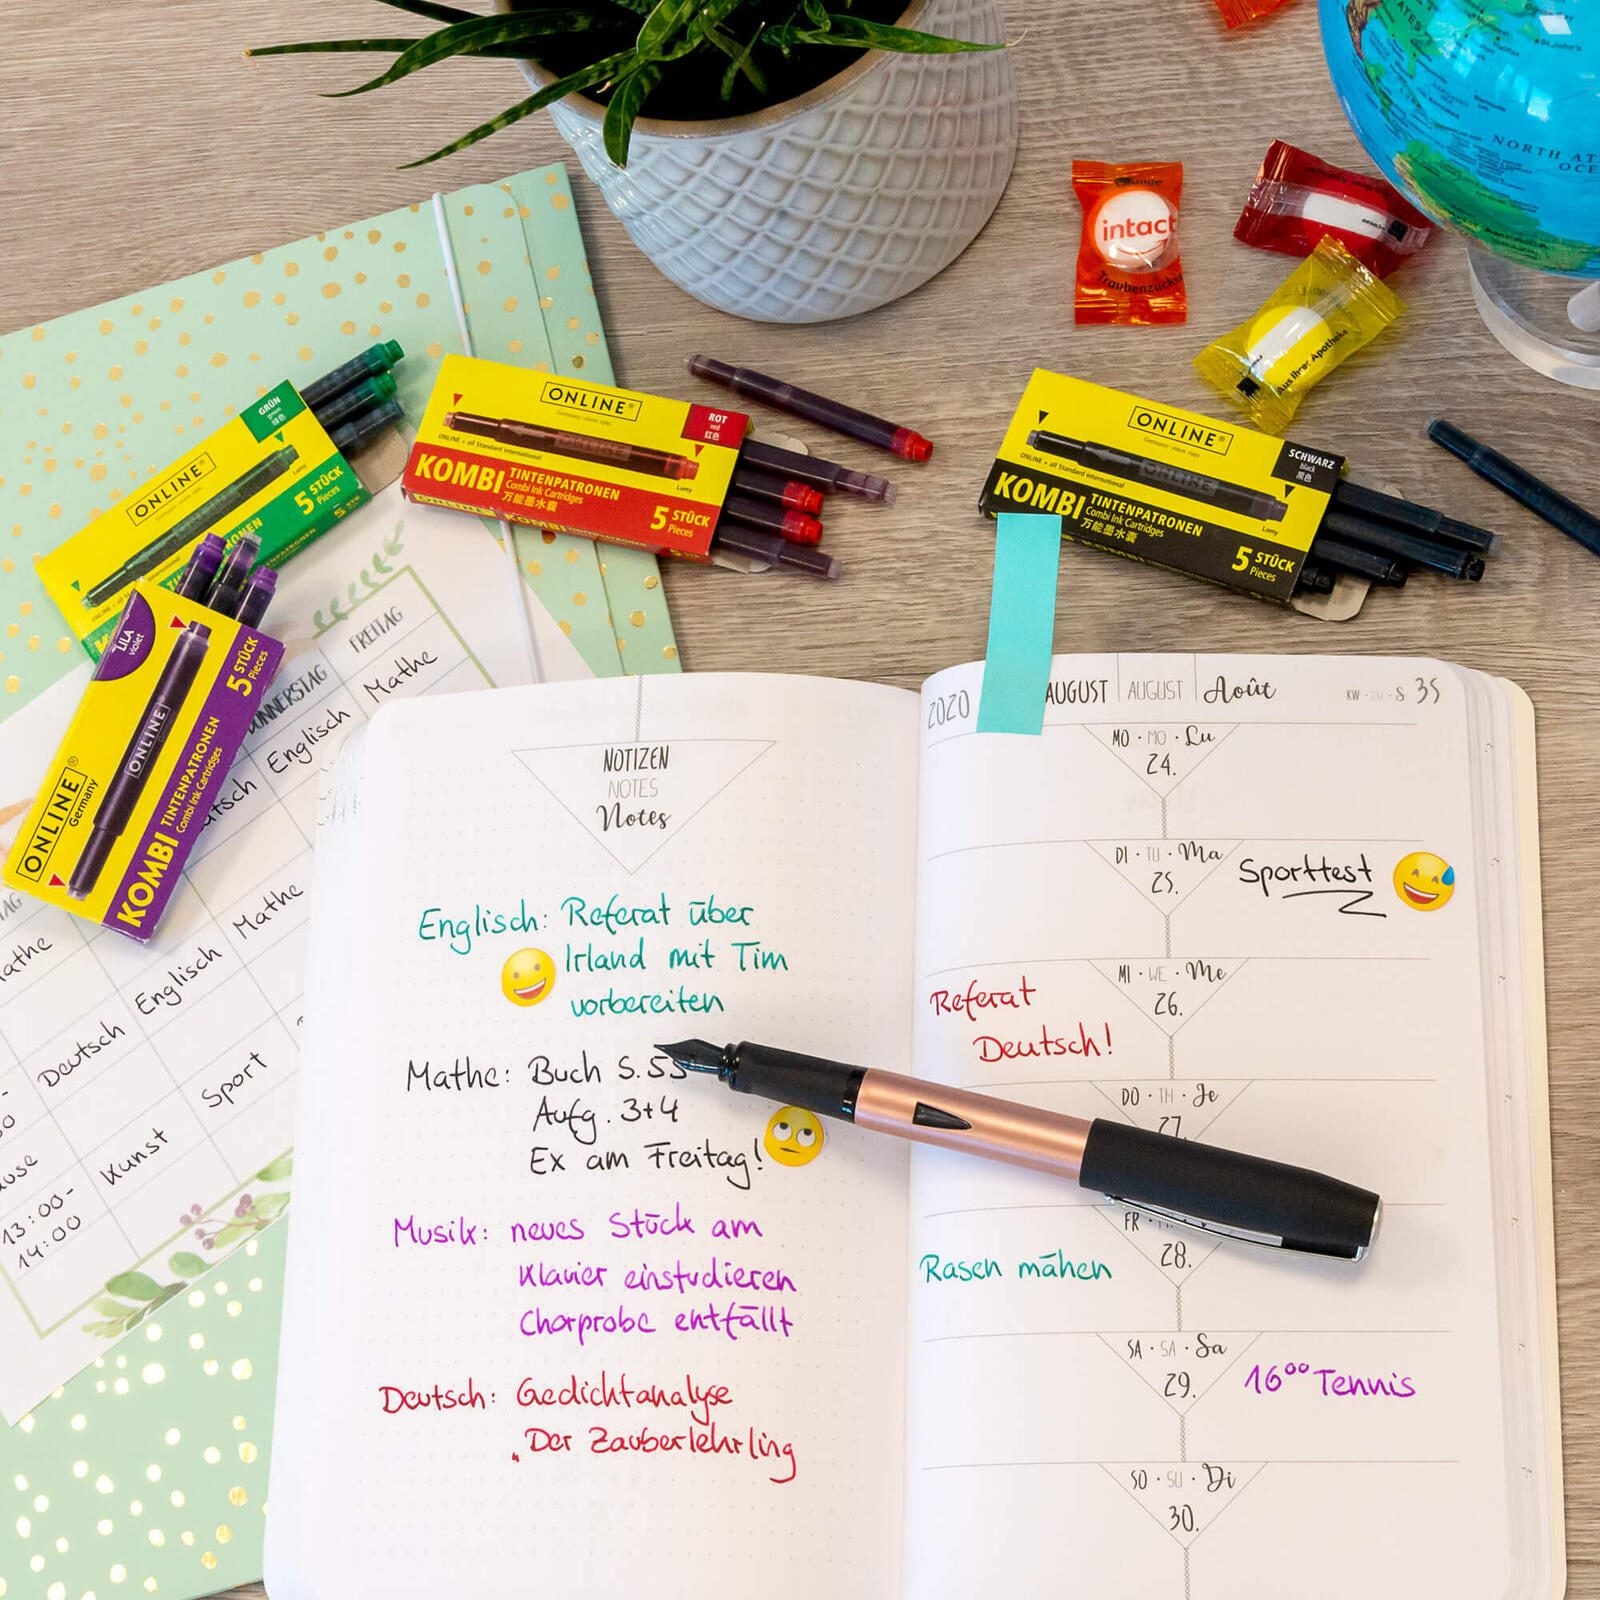 NORTH AT
OCE
St.John's
Halifax
Bermuda
intact
Traubenzucker
Aus Ihrer Apotheke
GRÜN
green
绿色
ONLINE
5 STÜCK
Pieces
ONLINE
Germany - since 1991
ROT
red
红色
ONLINE + all Standard international
Lamy
KOMBI TINTENPATRONEN
Combi Ink Cartridges
万能墨水囊
5 STÜCK
Pieces
ONLINE KOMBI
ONLINE
Germany - since 1991
SCHWARZ
black
黑色
ONLINE + all Standard international
Lamy
KOMBI TINTENPATRONEN
Combi Ink Cartridges
万能墨水囊
5 STÜCK
Pieces
LILA
violet
ONLINE
ONLINE
Germany
KOMBI TINTENPATRONEN
Combi Ink Cartridges
5 STÜCK
Pieces
FREITAG
Mathe
Englisch
Mathe
Englisch
Deutsch
Sport
Kunst
13:00-
14:00
NOTIZEN
NOTES
Notes
Englisch: Referat über
Irland mit Tim
vorbereiten
Mathe: Buch S. 55
Aufg. 3+4
Ex am Freitag!
Musik: neues Stück am
Klavier einstudieren
Chorprobe entfällt
Deutsch: Gedichtanalyse
„Der Zauberlehrling
2020 AUGUST | AUGUST | Août KW · CW · S 35
MO · MO · Lu
24.
DI · TU · Ma
25.
Sporttest
MI · WE · Me
26.
Referat
Deutsch!
DO · TH · Je
27.
FR
28.
Rasen mähen
SA · SA · Sa
29.
16⁰⁰ Tennis
SO · SU · Di
30.